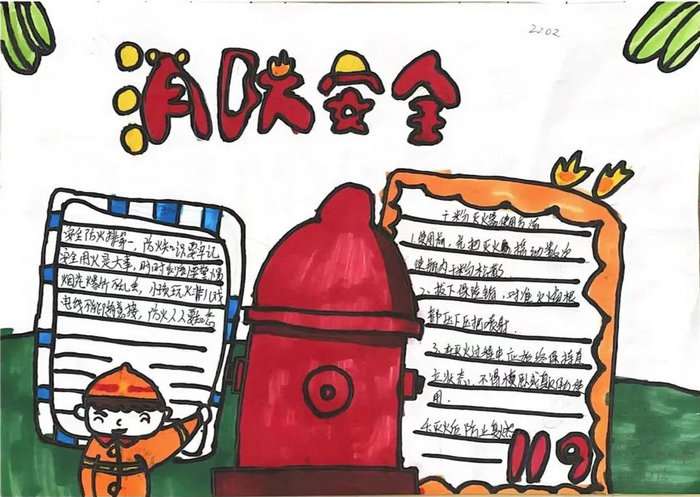 2202
消防安全
安全防火排第一，防火知识要牢记
安全用火是大事，时时刻刻
烟花爆竹不乱，小孩玩火
电线不能，防火人人要
干粉灭火器使用方法
1.使用前，先把灭火器摇动数次
使瓶内干粉松散
2、拔下保险销，对准火焰根
部压下压把喷射.
3.在灭火过程中应始终保持直
立状态，不得横卧或颠倒使
用.
4.灭火后防止复燃
119